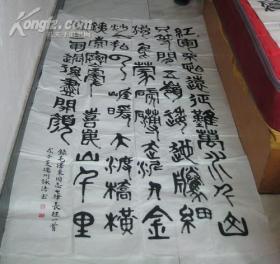 紅軍不怕遠征難萬水千山
只等閒五嶺逶迤騰細
浪烏蒙磅礴走泥丸金
沙水拍雲崖暖大渡橋橫
鐵索寒更喜岷山千里
雪三軍過後盡開顏
錄毛澤東同志七律長征一首